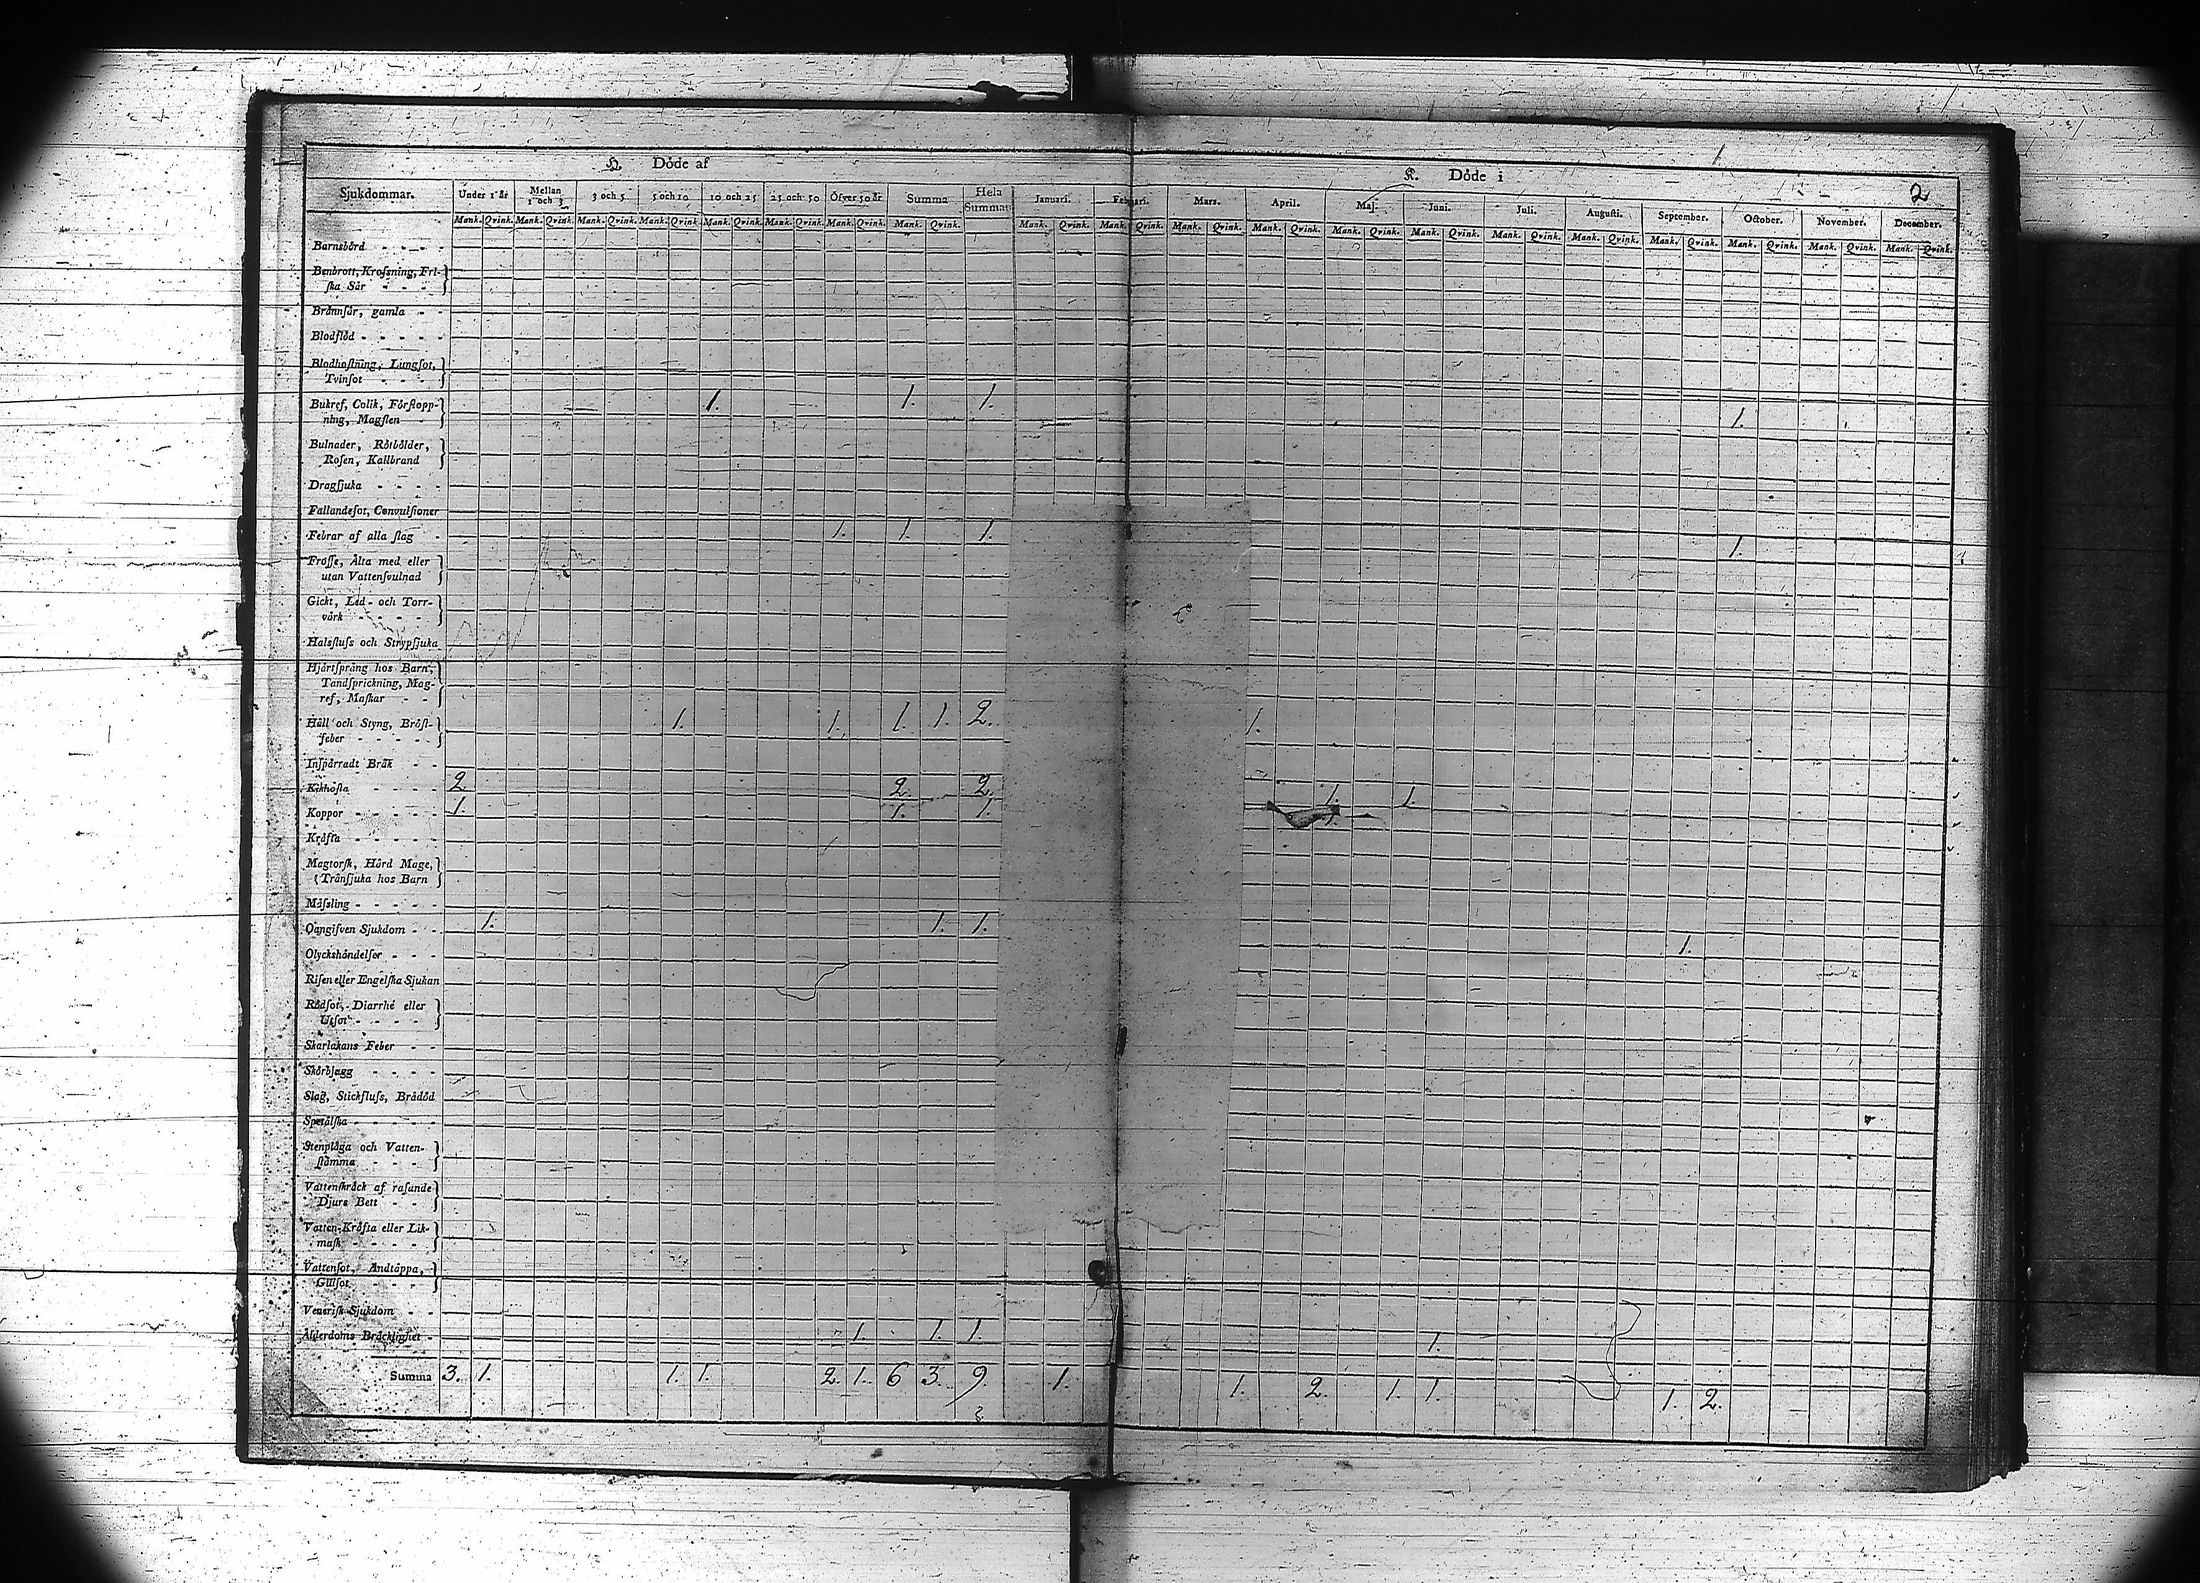 Döde af
K. Döde i
2
Sjukdommar. Under 1 år Mellan 1 och 3 3 och 5 5 och 10 10 och 25 25 och 50 Öfver 50 år Summa Hela Summan Januari. Februari. Mars. April. Maj. Juni. Juli. Augusti. September. October. November. December.
Mank. Qvink. Mank. Qvink. Mank. Qvink. Mank. Qvink. Mank. Qvink. Mank. Qvink. Mank. Qvink. Mank. Qvink. Mank. Qvink. Mank. Qvink. Mank. Qvink. Mank. Qvink. Mank. Qvink. Mank. Qvink. Mank. Qvink. Mank. Qvink. Mank. Qvink. Mank. Qvink. Mank. Qvink. Mank. Qvink.
Barnsbörd
Benbrott, Krossning, Fri-
ska Sår
Brännsår, gamla
Blodflöd
Blodhostning, Lungsot,
Tvinsot
Bukref, Colik, Förstopp- 1. 1. 1.
ning, Magsten 1.
Bulnader, Rötbölder,
Rosen, Kallbrand
Dragsjuka
Fallandesot, Convulsioner
Febrar af alla slag 1. 1. 1. 1.
Frosse, Älta med eller
utan Vattensvulnad
Gickt, Led- och Torr-
värk
Halsfluss och Strypsjuka
Hjärtsprång hos Barn,
Tandsprickning, Mag-
ref, Maskar
Håll och Styng, Bröst- 1. 1. 1. 1. 2. 1.
feber
Inspärradt Bråk
Kikhosta 2 2. 2. 1. 1.
Koppor 1. 1. 1. 1.
Kräfta
Magtorsk, Hård Mage,
Trånsjuka hos Barn
Mässling
Oangifven Sjukdom 1. 1. 1. 1.
Olyckshändelser
Risen eller Engelska Sjukan
Rödsot, Diarrhé eller
Utsot
Skarlakans Feber
Skörbjugg
Slag, Stickfluss, Brådöd
Spetälska
Stenplåga och Vatten-
stämma
Vattenskräck af rasande
Djurs Bett
Vatten-Kräfta eller Lik-
mask
Vattensot, Andtäppa,
Gulsot
Venerisk Sjukdom
Ålderdoms Bräcklighet 1. 1. 1. 1.
Summa 3. 1. 1. 1. 2. 1. 6 3. 9. 1. 1. 2. 1. 1. 1. 2.